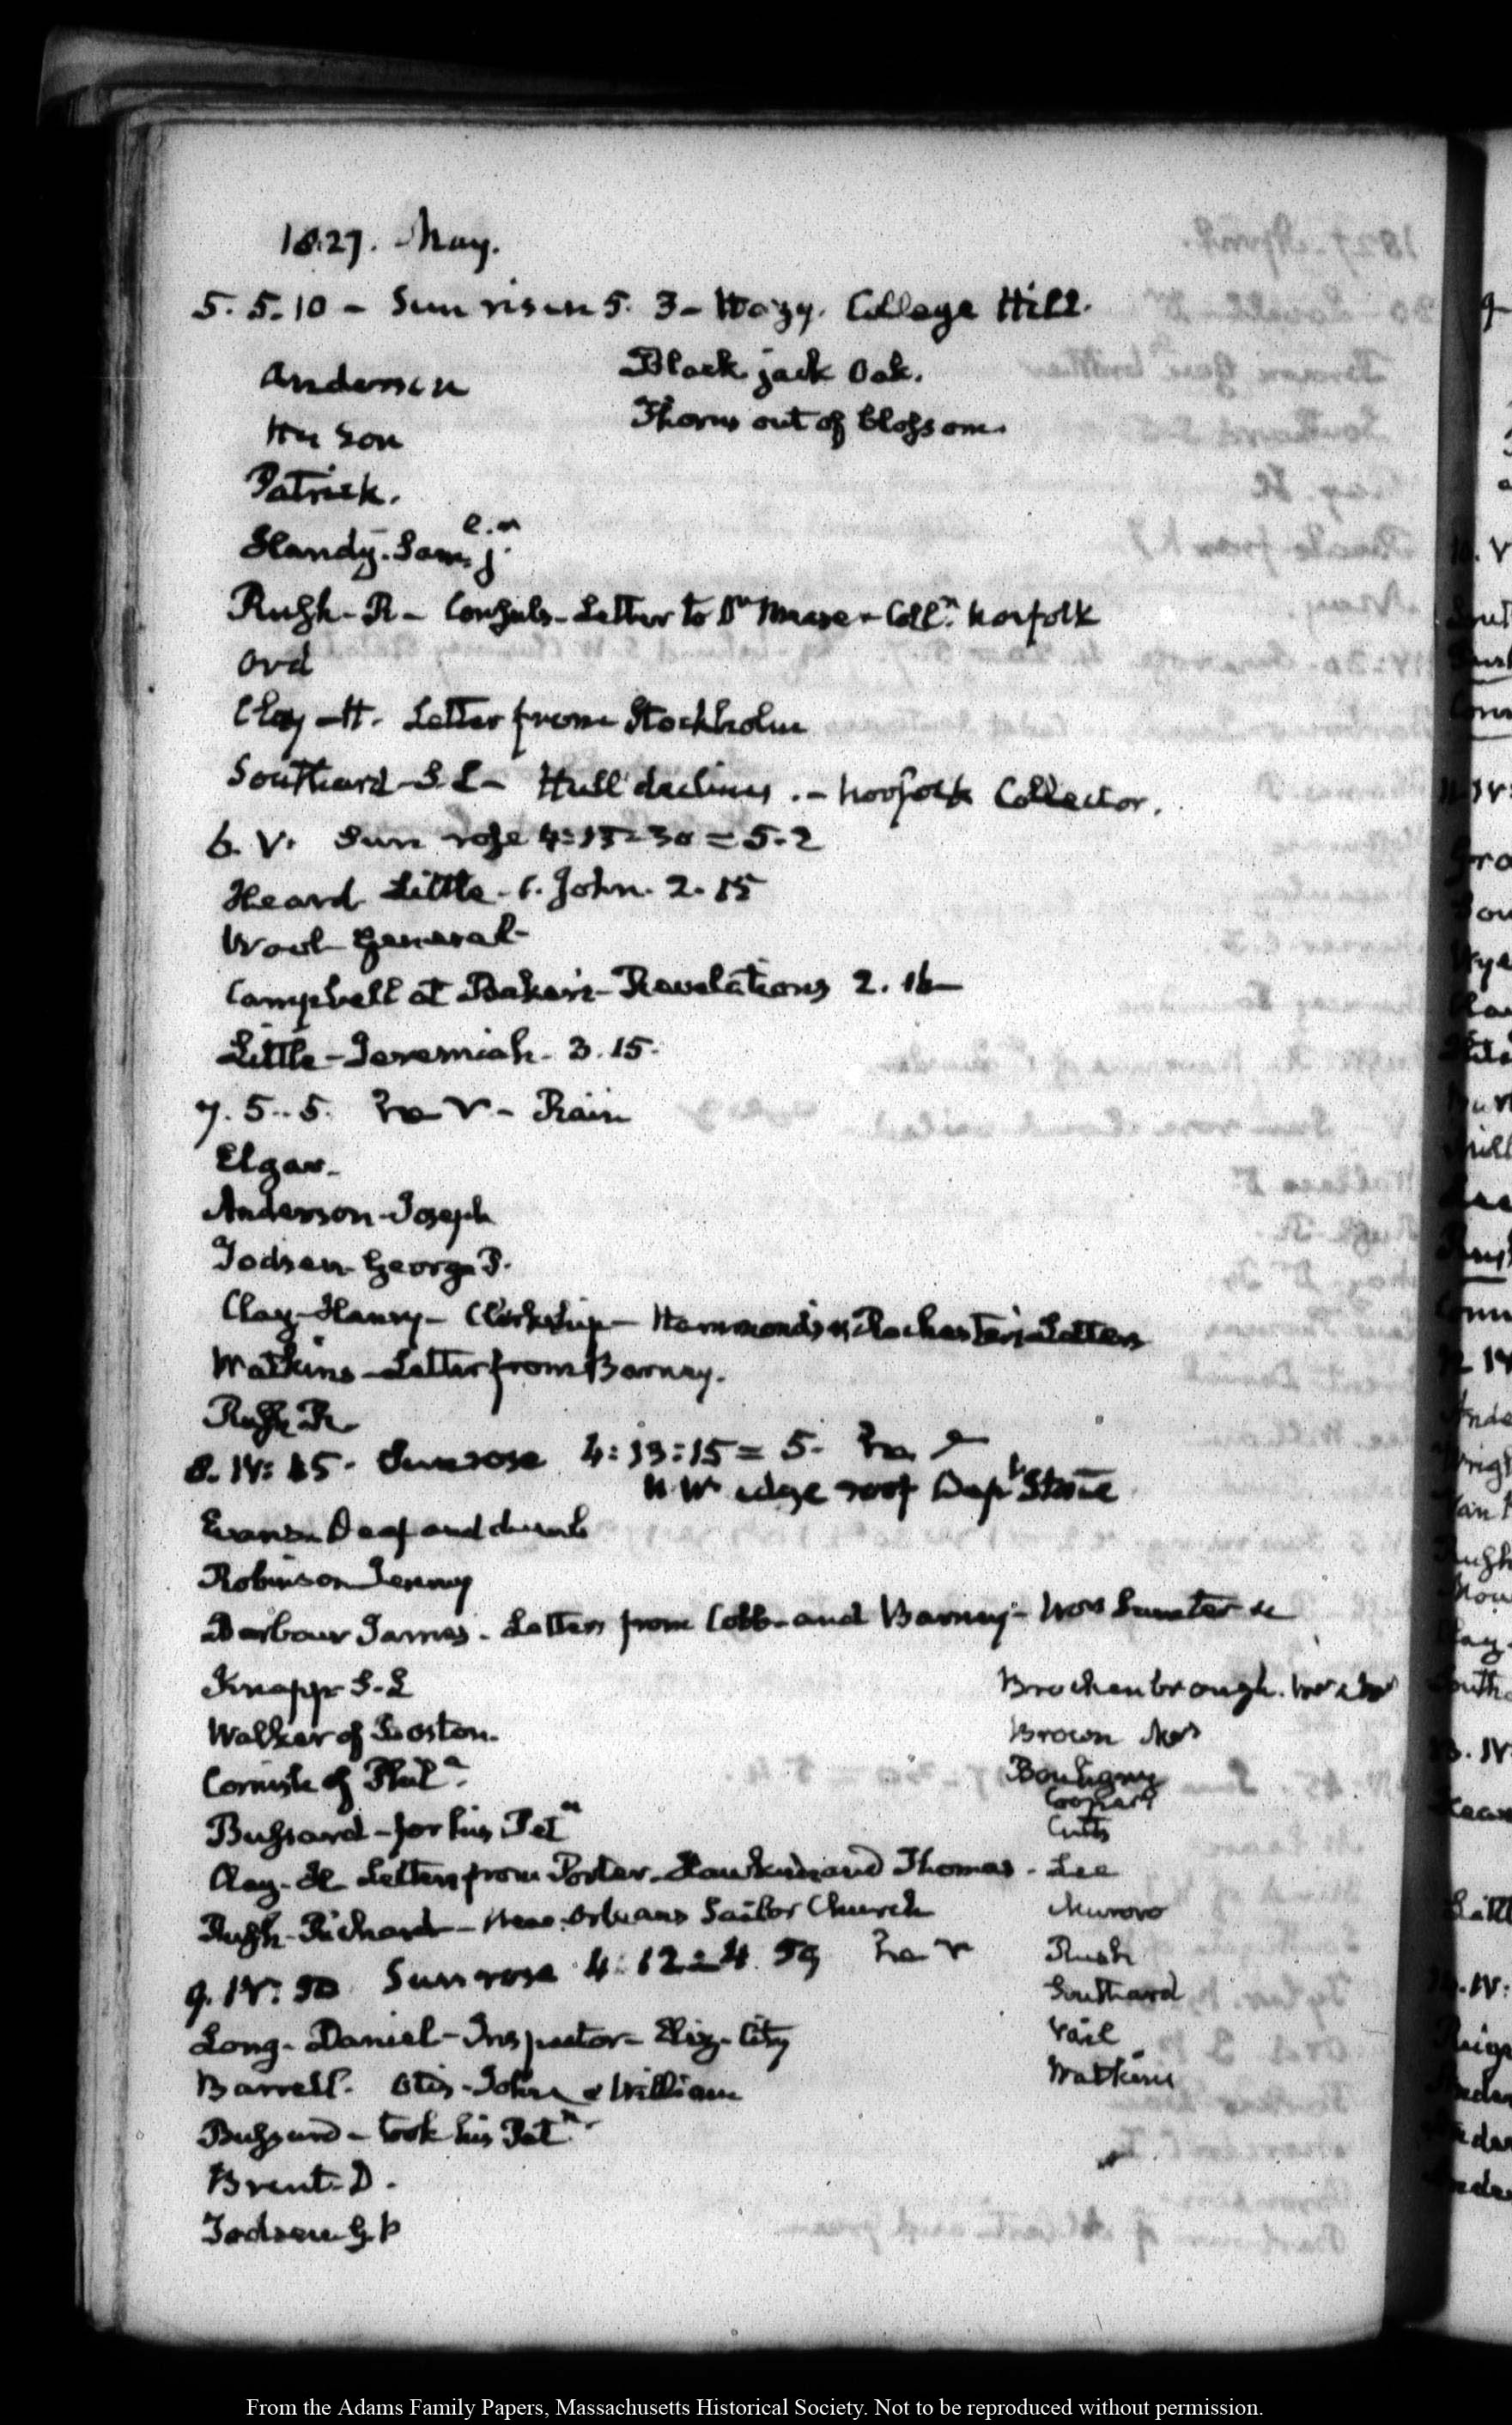 1827. May.
5. 5.10 – Sun risen 5. 3 – Hazy. College Hill.
Anderson
Black jack Oak.
His Son
Thorns out of blossom.
Patrick.
Handy. Sam.
Rush – R – Consuls – Letter to Dr Mease – Coll.n Norfolk
Ord
Clay – H. Letter from Stockholm
Southard – S. L – Hull declines. – Norfolk Collector.
6. V. Sun rose 4:13:30 = 5.2
Heard Little – 1. John. 2. 15
Wool General
Campbell at Baker's – Revelations 2. 16 –
Little – Jeremiah. 3. 15.
7. 5..5. V – Rain
Elgar.
Anderson – Joseph
Todsen – George P.
Clay – Henry – Clerkship – Hammond's & Rochester's Letters
Watkins – Letter from Barney.
Rush R.
8. IV: 45. Sun rose 4:13:15 = 5.
N.W. edge roof Dept State
Evans – Deaf and dumb
Robinson Jenny
Barbour James. Letters from Cobb – and Barney –
Knapp S. L
Walker of Boston.
Cornish of Phila.
Bussard – for his Petn
Clay – H Letters from Porter – Hawkins and Thomas.
Rush – Richard – New-Orleans Sailor Church
9. IV: 50 Sun rose 4:12 = 4. 59
Long – Daniel – Inspector – Eliz. City
Barrell. Otis – John & William
Bussard – took his Petn.
Brent. D.
Todsen G. P
Brockenbrough.
Brown Mrs
Bouligny
Cutts
Lee
Munroe
Rush
Southard
Vail
Watkins
From the Adams Family Papers, Massachusetts Historical Society. Not to be reproduced without permission.